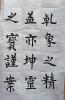 乾象之精
益亦坤靈
之寶謹案